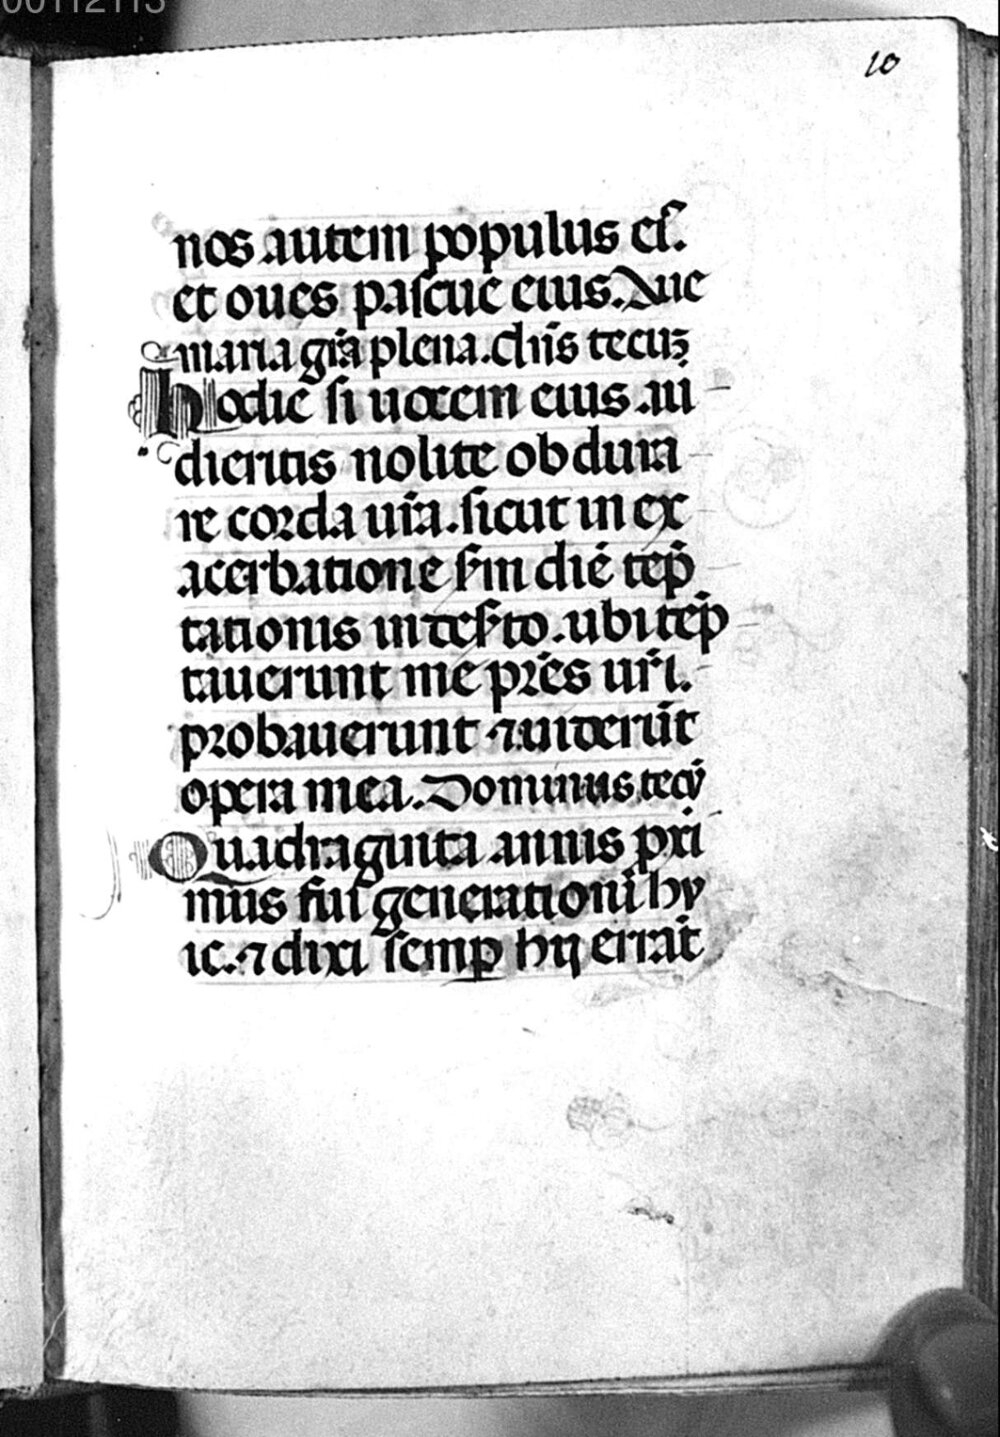 00112113
10
nos autem populus eſ.
et oues paſcue eius. Aue
maria gr̃a plena. dñs tecuꝫ
hodie ſi uocem eius au
dieritis nolite obdura
re corda ur̃a. ſicut in ex
acerbatione ſm̃ diē tep̃
tationis in deſto. ubi tep̃
tauerunt me pr̃es ur̃i.
probauerunt ⁊ uiderūt
opera mea. Dominus tecū
Quadraginta annis pxi
mus fui generationi hu
ic. ⁊ dixi ſemꝑ hij errāt